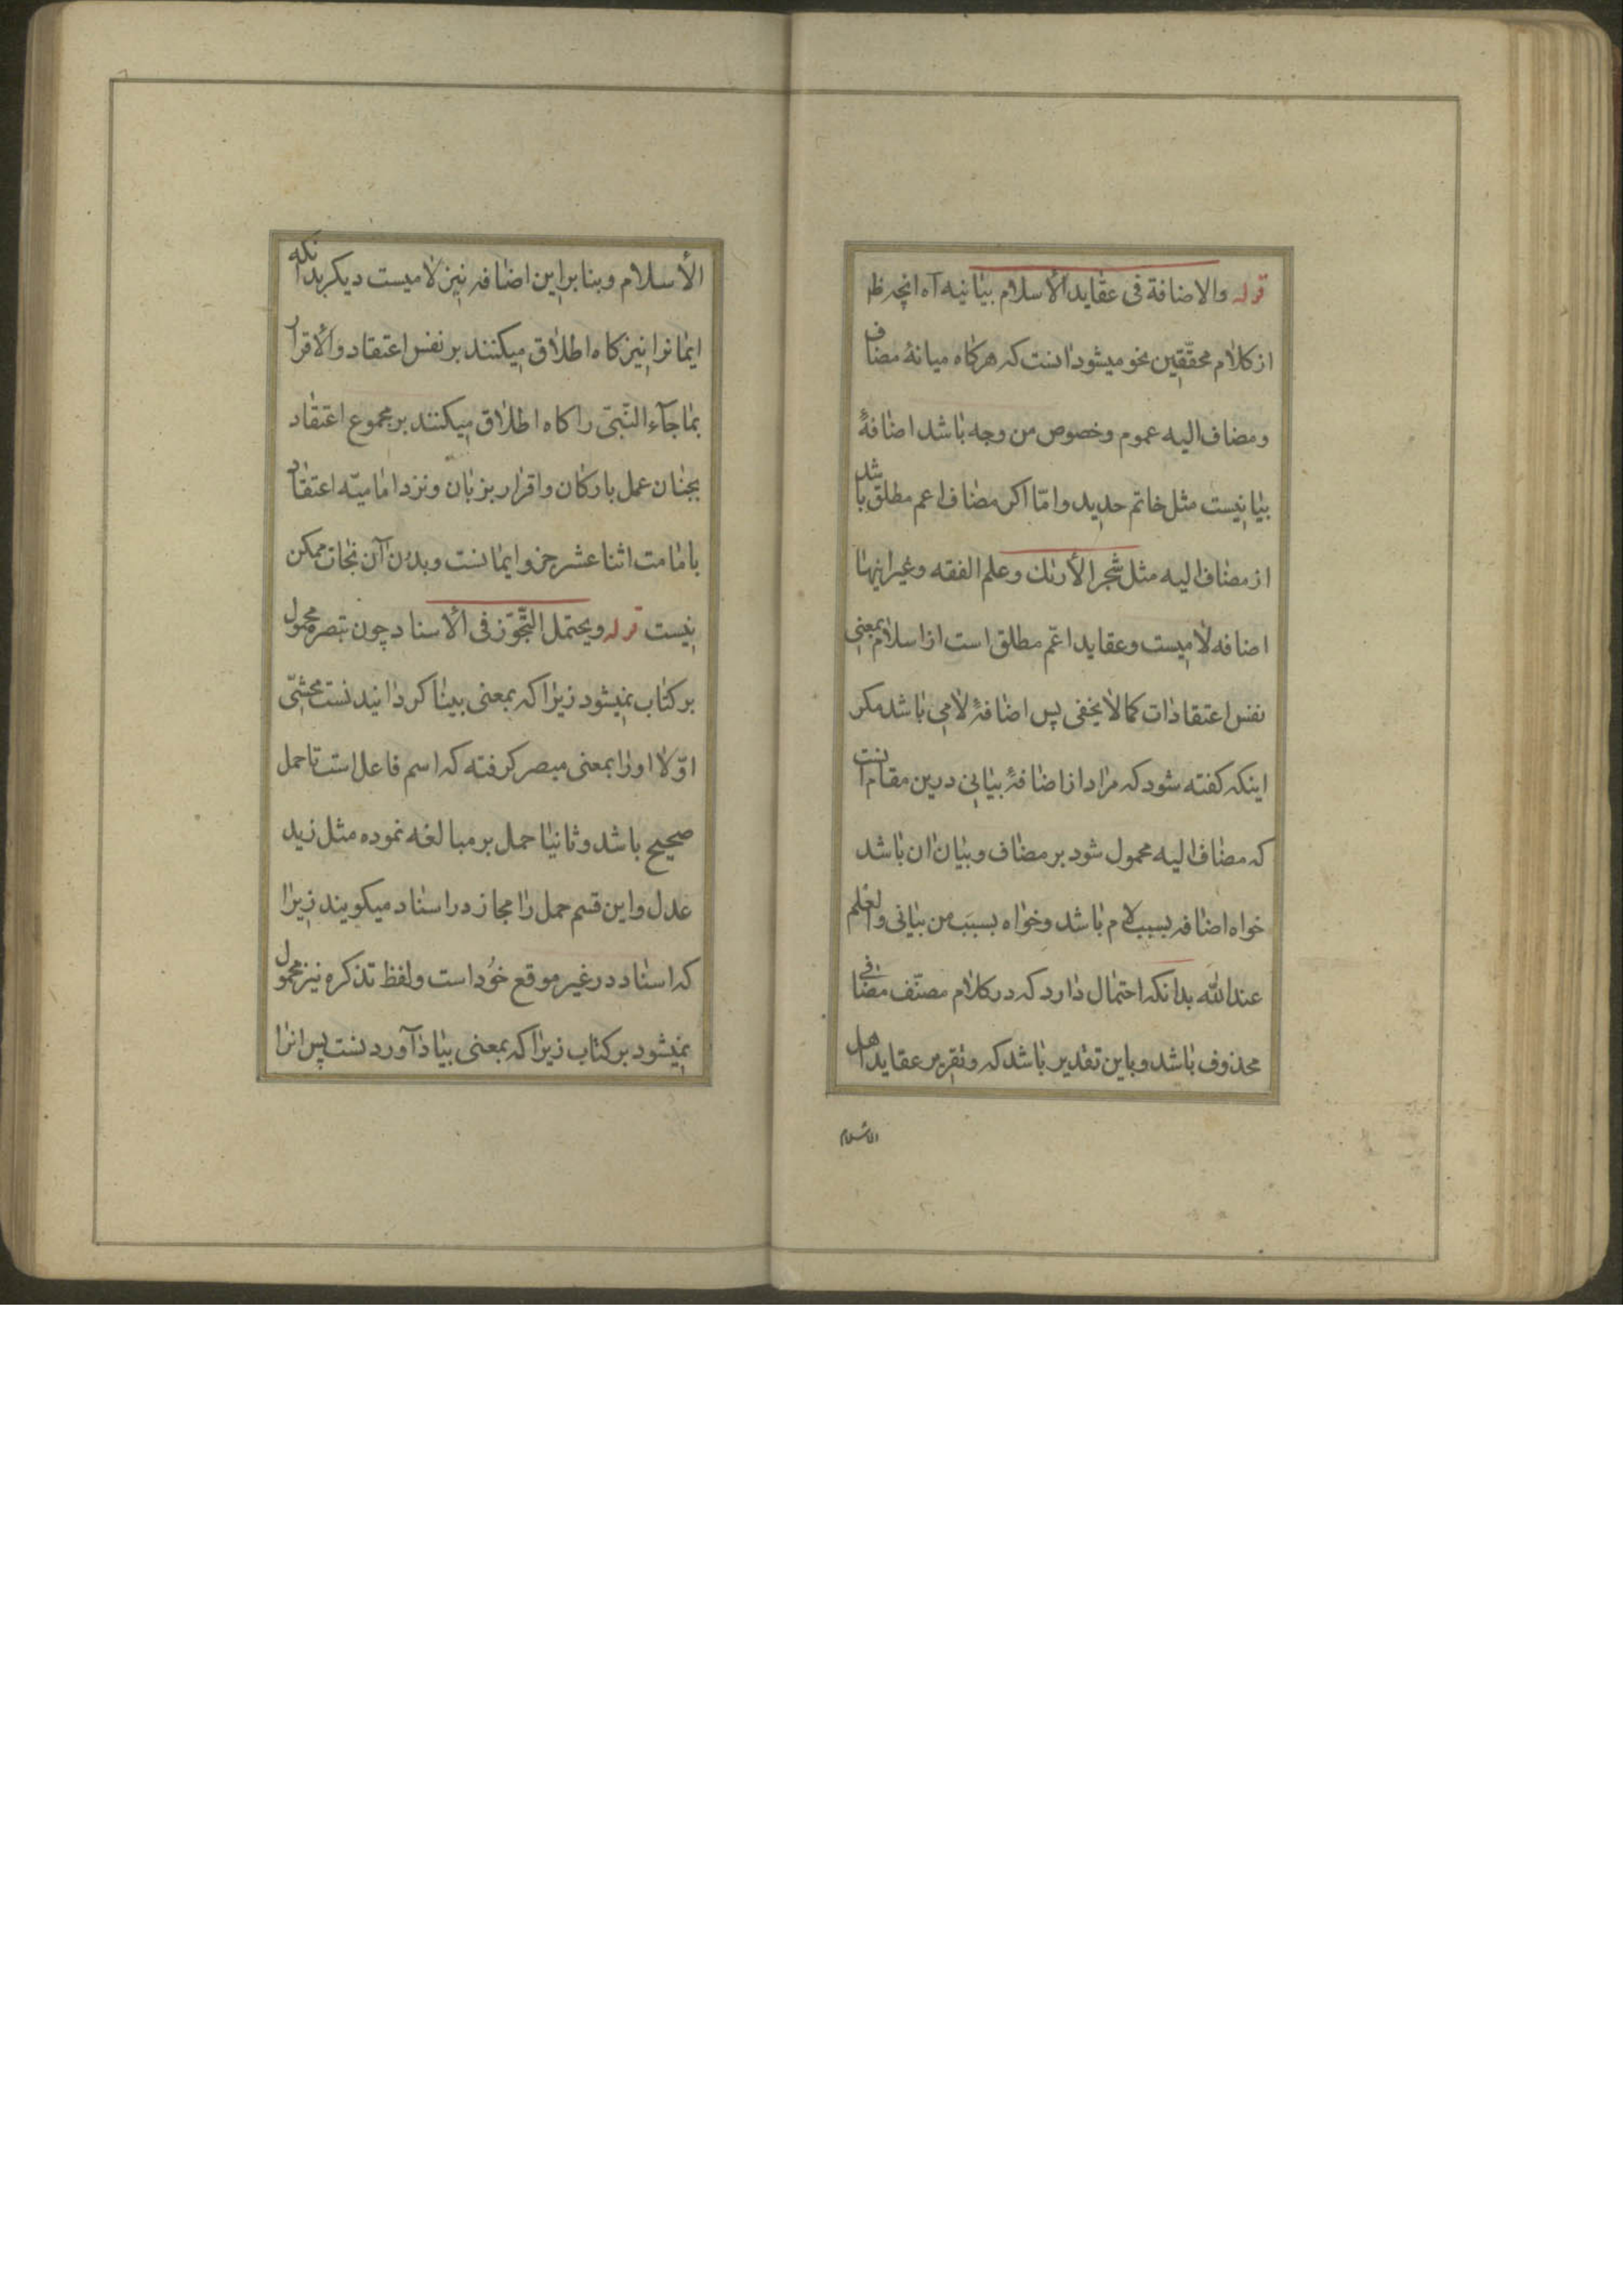 قوله والاضافة فی عقاید الأسلام بیانیه آه انچه ظ
از کلام محققین نحو میشود انست که هرکاه میانهٔ مضاف
ومضاف الیه عموم وخصوص من وجه باشد اضافهٔ
بیانیست مثل خاتم حدید وامّا اکر مضاف اعم مطلق باشد
از مضاف الیه مثل شجر الأراك وعلم الفقه وغیر اینها
اضافه لامیست وعقاید اعّم مطلق است از اسلام بمعنی
نفس اعتقادات کما لا یخفی پس اضافهٔ لامی باشد مکر
اینکه کفته شود که مراد از اضافهٔ بیانی درین مقام انت
که مضاف الیه محمول شود بر مضاف وبیان ان باشد
خواه اضافه بسبب لام باشد وخواه بسبب من بیانی والعلم
عندالله بدانکه احتمال دارد که در کلام مصنّف مضافی
محذوف باشد وباین تقدیر باشد که وتقریر عقاید اهل
الاسلام
الأسلام وبنا براین اضافه نیز لامیست دیکر بدانکه
ایمانرا نیز کاه اطلاق میکنند بر نفس اعتقاد والأقرار
بما جآء النّبیّ را کاه اطلاق میکنند بر مجموع اعتقاد
بجنان عمل بارکان واقرار بزبان ونزد امامیّه اعتقاد
بامامت اثنا عشر جزو ایمانست وبدون آن نجات ممکن
نیست قوله ویحتمل التّجوّز فی الأسناد چون تبصره محمول
بر کتاب نمیشود زیرا که بمعنی بینا کردانیدنست محشّی
اوّلا اورا بمعنی مبصر کرفته که اسم فاعل است تا حمل
صحیح باشد وثانیا حمل بر مبالغه نموده مثل زید
عدل واین قسم حمل را مجاز در اسناد میکویند زیرا
که اسناد در غیر موقع خود است ولفظ تذکره نیز محمول
نمیشود بر کتاب زیرا که بمعنی بیاد آوردنست پس انرا